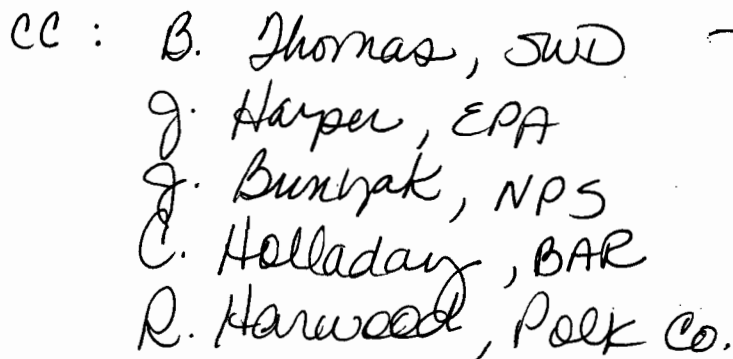 CC : B. Thomas, SWD
J. Harper, EPA
J. Bunyak, NPS
C. Holladay, BAR
R. Harwood, Polk Co.